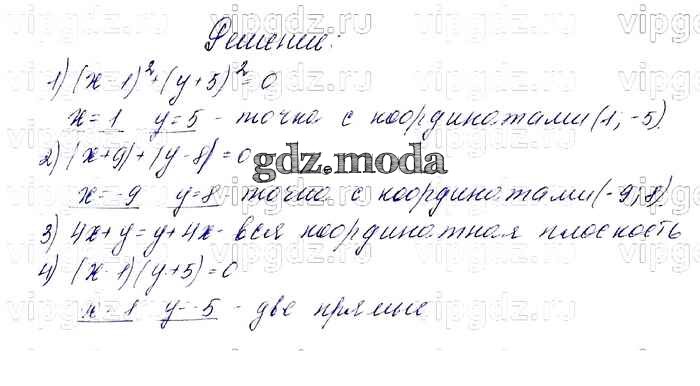 vipgdz.ru vipgdz.ru vipgdz.ru vipgdz.ru
Решение:
1) (x-1)²+(y+5)²=0
vipgdz.ru vipgdz.ru vipgdz.ru vipgdz.ru
x=1 y=5 - точка с координатами (1; -5)
2) |x+9|+|y-8|=0
gdz.moda
x=-9 y=8 точка с координатами (-9; 8)
3) 4x+y=y+4x - вся координатная плоскость
4) (x-1)(y+5)=0
vipgdz.ru vipgdz.ru vipgdz.ru vipgdz.ru
x=1 y=-5 - две прямые